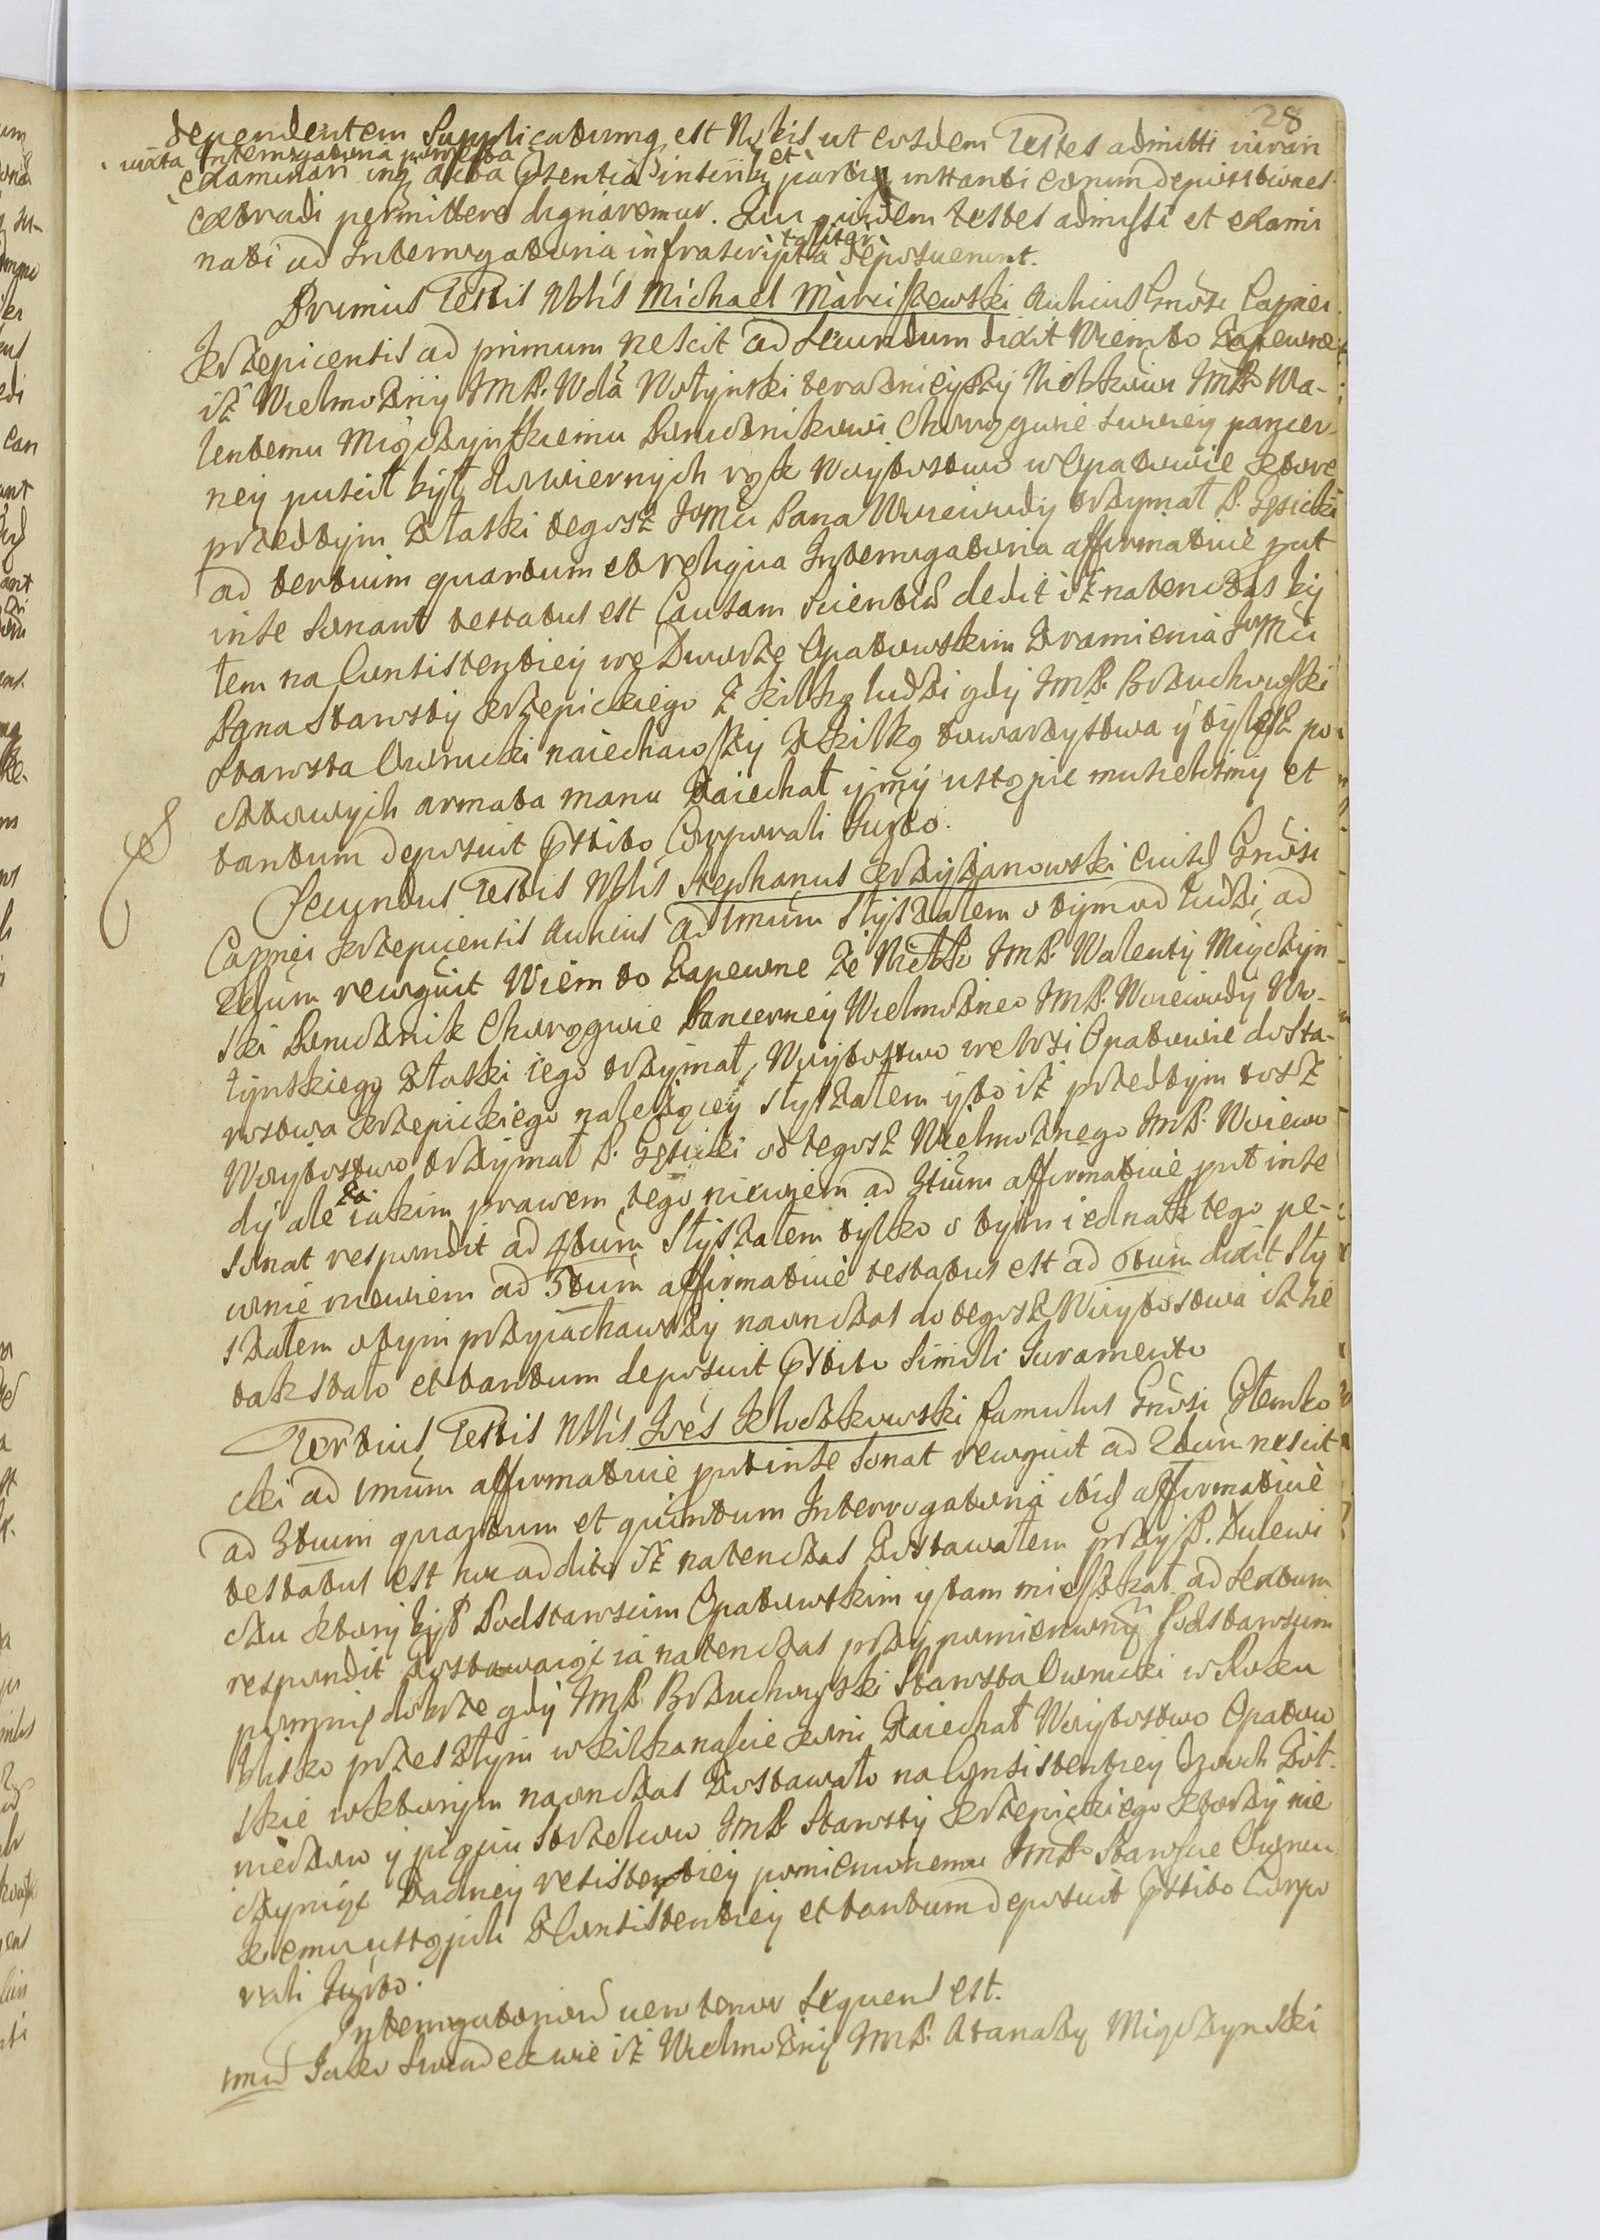 28
dependentem Supplicatumq est Nobis ut eosdem Testes admitti iurari
iuxta Interrogatoria porrecta
examinari inq acta pntia inseri et parti instanti eorum depositiones
extradi permittere dignaremur. Qui quidem testes admissi et exami
nati ad Interrogatoria infrascripta taliter deposuerunt.
Primus Testis Nblis Michael Marciszewski Aulicus Gnosi Capnei
Krzepicensis ad primum nescit ad secundum dixit Wiem to zapewne
iż Wielmożny JmP. Wda Wołynski terazniejszy Niebkowi JmP Wa-
lentemu Miączynskiemu Porucznikowi Chorągwie swoiey pancer-
ney puscił był do wiernych rąk Woytostwo w Opatowie ktore
przedtym z łaski tegosz JoMci Pana Woiewody trzymał P. Gęsicki
ad tertium quartum et reliqua Interrogatoria affirmative put
inse sonant testatus est Causam scientiae dedit iż natenczas by
łem na Consistentiey we Dworze Opatowskim z ramienia JoMci
Pana Starosty Krzepickiego z kilką ludzi gdy JmP. Brzuchowski
Starosta Owrucki naiechawszy z kilką towarzystwa y tylesz po
cztowych armata manu zaiechał y my ustąpic musielismy et
tantum deposuit pstito Corporali Jurto.
Secundus Testis Nblis Stephanus Krzyżanowski eiusd Gnosi
Capnei Krzepicensis Aulicus ad 1mum słyszałem o tym od ludzi, ad
2dum recognit Wiem to zapewne że Niebo JmP. Walenty Miączyn
ski Porucznik Chorągwie Pancerney Wielmożneo JmP. Woiewody Wo-
łynskiego z łaski iego trzymał, Woytostwo we Wsi Opatowie do Sta-
rostwa Krzepickiego należącey słyszałem y to iż przedtym tosz
Woytostwo trzymał P. Gęsicki od tegosz Wielmożnego JmP. Woiewo
dy ale za iakim prawem tego niewiem ad 3tium affirmative put inse
sonat respondit ad 4tum Słyszałem tylko o tym iednak tego pe-
wnie niewiem ad 5tum affirmative testatus est ad 6tum dixit Sły
szałem otym przyiachawszy naonczas do tegosz Woytostwa isz sie
tak stało et tantum deposuit pstito simili Juramento
Tertius Testis Nblis Joes Kłoczkowski famulus Gnosi
cki ad 1mum affirmative put inse sonat recognit ad 2dum nescit
ad 3tium quartum et quintum Interrogatoria affirmative
testatus est hoc addito isz natenczas zostawałem przy P. Zulewi
czu ktory był Podstaroscim Opatowskim y tam mieszkał ad sextum
respondit zostawaiąc ia natenczas przy pomienionym Podstaroscim
pomnię dobrze gdy JmP. Brzuchowski Starosta Owrucki w Roku
blisko przeszłym w kilkanascie koni zaiechał Woytostwo Opatow
skie w ktorym naonczas zostawało na Consistentiey Czoch Żoł-
nierzow y pięciu strzelcow JmP. Starosty Krzepickiego ktorzy nie
czyniąc żadney resistentiey pomienionemu JmP Staroscie Owruc
kiemu ustąpili z Consistentiey et tantum deposuit pstito Corpo
rali Jurto.
Interrogatorioru vero tenor sequens est.
1mo Jako swiadek wie iż Wielmożny JmP. Atanazy Miączynski